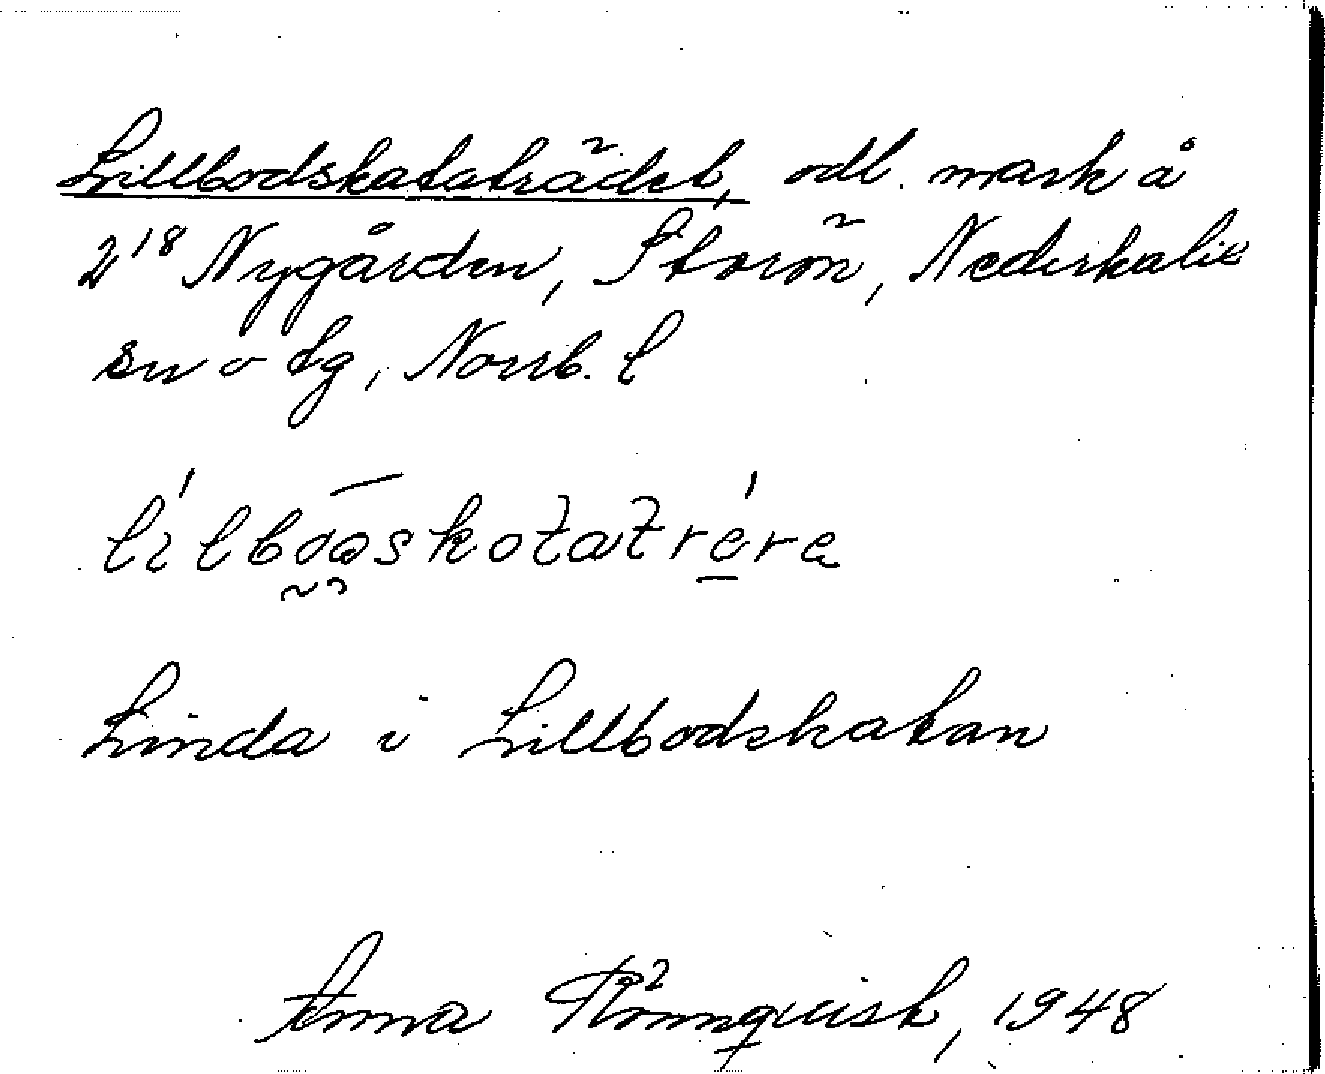 Lillbodskataträdet, odl. mark å
2¹⁸ Nygården, Storön, Nederkalix
sn o tg, Norrb. l
lilboaskotatrere
Linda i Lillbodskatan
Anna Rönnqvist, 1948